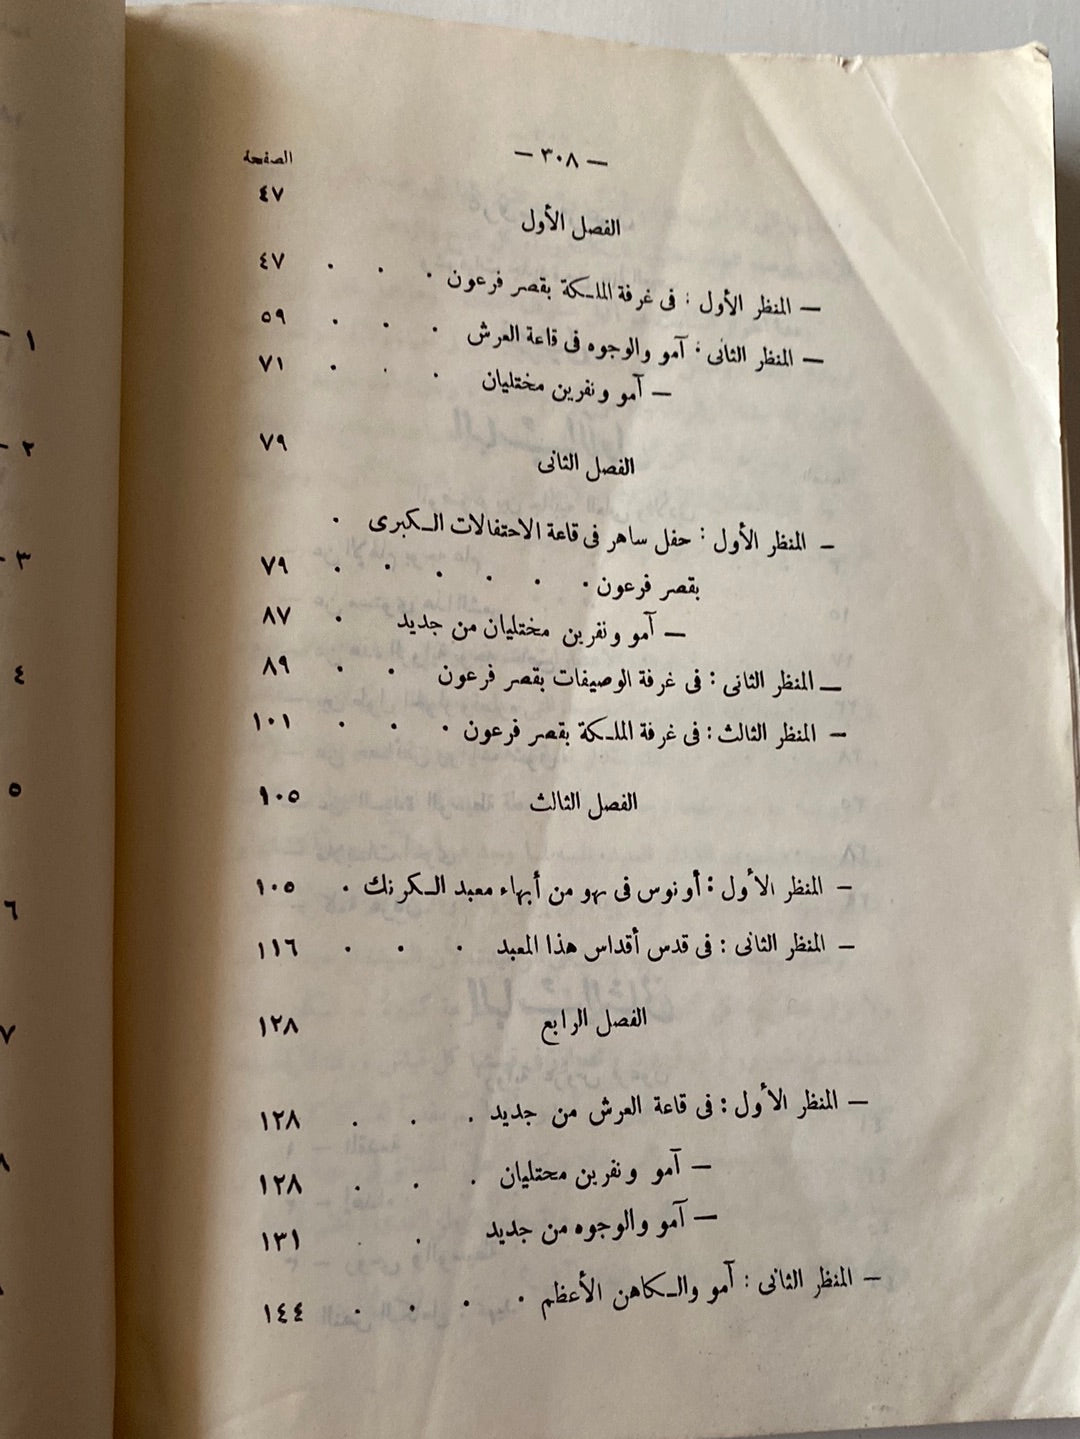 — ٣٠٨ —
الصفحة
الفصل الأول ٤٧
— المنظر الأول : فى غرفة الملكة بقصر فرعون . . . ٤٧
— المنظر الثانى : آمو والوجوه فى قاعة العرش . . . ٥٩
— آمو ونفرين مختليان . . . ٧١
الفصل الثانى ٧٩
— المنظر الأول : حفل ساهر فى قاعة الاحتفالات الكبرى .
بقصر فرعون . . . . . . ٧٩
— آمو ونفرين مختليان من جديد . ٨٧
— المنظر الثانى : فى غرفة الوصيفات بقصر فرعون . . ٨٩
— المنظر الثالث : فى غرفة الملكة بقصر فرعون . . . ١٠١
الفصل الثالث ١٠٥
— المنظر الأول : أونوس فى بهو من أبهاء معبد الكرنك . ١٠٥
— المنظر الثانى : فى قدس أقداس هذا المعبد . . . ١١٦
الفصل الرابع ١٢٨
— المنظر الأول : فى قاعة العرش من جديد . . . ١٢٨
— آمو ونفرين محتليان . . . ١٢٨
— آمو والوجوه من جديد . . ١٣١
— المنظر الثانى : آمو والكاهن الأعظم . . . . ١٤٤
١ -
٢ -
٣ -
٤
٥
٦
٧
٨